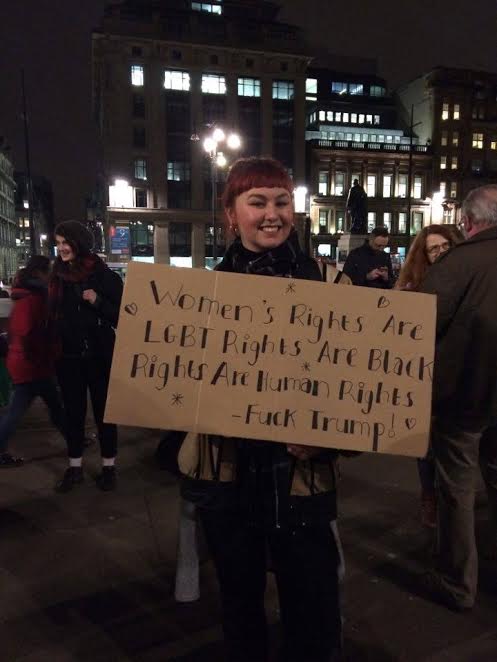 Women's Rights Are
LGBT Rights Are Black
Rights Are Human Rights
- Fuck Trump!